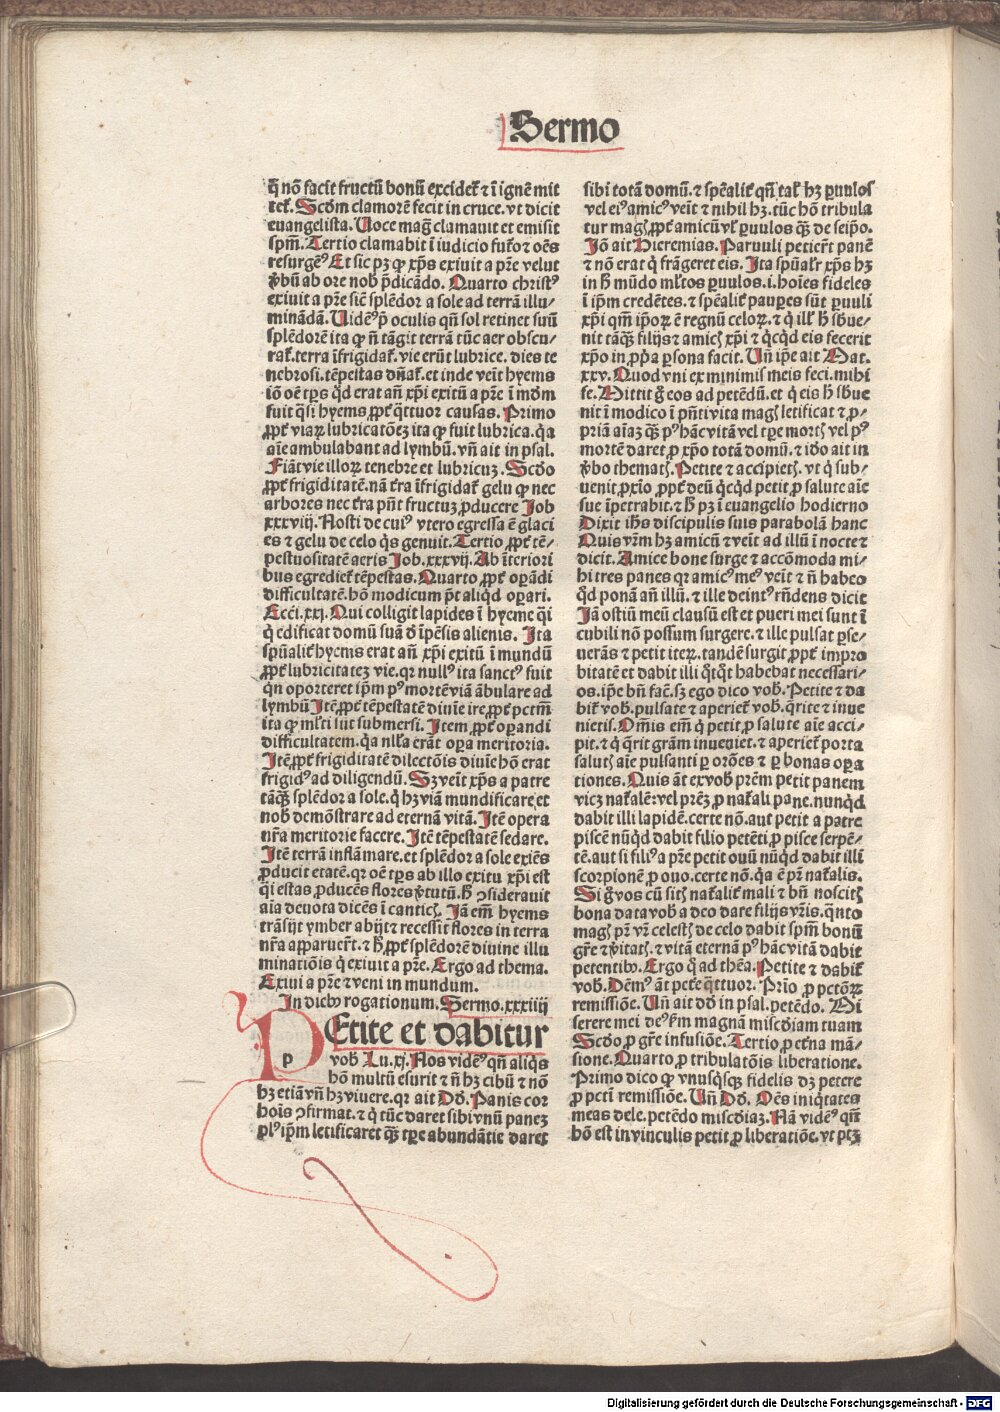 Sermo
q̄ nō facit fructū bonū excidet̄ ⁊ ī ignē mit
tet̄. Scd̄m clamorē fecit in cruce. vt dicit
euangelista. Uoce mag̃ clamauit et emisit
spm̄. Tertio clamabit ī iudicio fut̄o ⁊ oēs
resurgēꝰ Et sic pꝫ ꝙ xp̄s exiuit a pr̄e velut
ꝟbū ab ore nob̄ p̄dicādo. Quarto christꝰ
exiuit a pr̄e sic̄ splēdor a sole ad terrā illu/
minādā. Uidēꝰ p̄ oculis qn̄ sol retinet suū
splēdorē ita ꝙ n̄ tāgit terrā tūc aer obscu/
rat̄. terra īfrigidat̄. vie erūt lubrice. dies te
nebrosi. tēpestas dn̄at̄. et inde veīt hyems
iō oē tp̄s qd̄ erat an̄ xp̄i exitū a pr̄e ī mōm
fuit q̄si hyems ꝓpt̄ q̄ttuor causas. Primo
ꝓpt̄ viaꝝ lubricatōeꝫ ita ꝙ fuit lubrica. q̄a
aīe ambulabant ad lymbū. vn̄ ait in psal.
Fiāt vie illoꝝ tenebre et lubricuꝫ. Scd̄o
ꝓpt̄ frigiditatē. nā t̄ra īfrigidat̄ gelu ꝙ nec
arbores nec t̄ra pn̄t fructuꝫ ꝓducere Job
xxxviij. Nosti de cuiꝰ vtero egressa ē glaci
es ⁊ gelu de celo q̄s genuit. Tertio ꝓpt̄ tē/
pestuositatē aeris Job. xxxvij. Ab īteriori
bus egrediet̄ tēpestas. Quarto ꝓpt̄ oꝑādi
difficultatē. hō modicum pt̄ aliqd̄ oꝑari.
Ecci. xxj. Qui colligit lapides ī hyeme q̄i
q̄ edificat domū suā d̄ īpēsis alienis. Ita
spūalit̄ hyems erat an̄ xp̄i exitū ī mundū
ꝓpt̄ lubricitateꝫ vie. qr nullꝰ ita sanctꝰ fuit
qn̄ oporteret ip̄m pꝰ mortē viā ābulare ad
lymbū Itē ꝓpt̄ tēpestatē diuīe ire. ꝓpt̄ pctm̄
ita ꝙ ml̄ti sūt submersi. Item ꝓpt̄ oꝑandi
difficultatem. q̄a nll̄a erāt oꝑa meritoria.
Itē ꝓpt̄ frigiditatē dilectōis diuīe hō erat
frigidꝰ ad diligendū. Sꝫ veīt xp̄s a patre
tāq̄ꝫ splēdor a sole. q̄ hꝫ viā mundificare et
nob̄ demōstrare ad eternā vitā. Itē opera
nr̄a meritorie facere. Itē tēpestatē sedare.
Itē terrā inflāmare. et splēdor a sole exiēs
ꝓducit etatē. qr oē tp̄s ab illo exitu xp̄i est
q̄i estas ꝓducēs flores ꝟtutū. h̄ ↄsiderauit
aīa deuota dicēs ī cantic̄. Jā em̄ hyems
trāsijt ymber abijt ⁊ recessit flores in terra
nr̄a apparuer̄t. ⁊ h̄ ꝓpt̄ splēdorē diuine illu
minatiōis q̄ exiuit a pr̄e. Ergo ad thema.
Exiui a pr̄e ⁊ veni in mundum.
In dieb̄ rogationum. Sermo. xxxiiij
PEtite et dabitur
p
vob̄ Lu. xj. Nos vidēꝰ qn̄ aliq̄s
hō multū esurit ⁊ n̄ hꝫ cibū ⁊ nō
hꝫ etiā vn̄ hꝫ viuere. qr ait Dd̄. Panis cor
hoīs ↄfirmat. ⁊ q̄ tūc daret sibi vnū panez
plꝰ ip̄m letificaret q̄ꝫ tp̄e abundātie daret
sibi totā domū. ⁊ spēalit̄ qn̄ tal̄ hꝫ ꝑuulos
vel eiꝰ amicꝰ veīt ⁊ nihil hꝫ. tūc hō tribula
tur maḡ ꝓpt̄ amicū vl̄ ꝑuulos q̄ꝫ de seip̄o.
Iō ait Hieremias. Paruuli petier̄t panē
⁊ nō erat q̄ frāgeret eis. Ita spūalr̄ xp̄s hꝫ
in h̄ mūdo ml̄tos ꝑuulos. i. hoīes fideles
ī ip̄m credētes. ⁊ spēalit̄ pauꝑes sūt ꝑuuli
xp̄i qm̄ ip̄oꝝ ē regnū celoꝝ. ⁊ q̄ ill̄ h̄ sb̄ue/
nit tāq̄ꝫ filijs ⁊ amic̄ xp̄i ⁊ qc̄qd̄ eis fecerit
xp̄o in ꝓp̄a ꝑsona facit. Un̄ ip̄e ait Mat.
xxv. Quod vni ex minimis meis feci. mihi
fe. Mittit g̃ eos ad petēdū. et q̄ eis h̄ sb̄ue
nit ī modico ī pn̄ti vita maḡ letificat ⁊ ꝓ/
priā aīaꝫ q̄ꝫ pꝰ hāc vitā vel tp̄e mort̄ vel pꝰ
mortē daret ꝓ xp̄o totā domū. ⁊ idō ait in
ꝟbo themat̄. Petite ⁊ accipiet̄. vt q̄ sub/
uenit ꝓxīo ꝓpt̄ deū qc̄qd̄ petit ꝓ salute aīe
sue īpetrabit. ⁊ h̄ pꝫ ī euangelio hodierno
Dixit ih̄s discipulis suis parabolā hanc
Quis vr̄m hꝫ amicū ⁊ veīt ad illū ī nocte ⁊
dicit. Amice bone surge ⁊ accōmoda mi/
hi tres panes qr amicꝰ meꝰ veīt ⁊ n̄ habeo
qd̄ ponā an̄ illū. ⁊ ille deintꝰ rn̄dens dicit
Jā ostiū meū clausū est et pueri mei sunt ī
cubili nō possum surgere. ⁊ ille pulsat ꝑse/
uerās ⁊ petit iteꝝ. tandē surgit ꝓpt̄ impro
bitatē et dabit illi q̄tq̄t habebat necessari/
os. ip̄e bn̄ fac̄. sꝫ ego dico vob̄. Petite ⁊ da
bit̄ vob̄. pulsate ⁊ aperiet̄ vob̄. q̄rite ⁊ inue
nietis. Om̄is em̄ q̄ petit ꝓ salute aīe acci/
pit. ⁊ q̄ q̄rit gr̄am inueniet. ⁊ aperiet̄ porta
salut̄ aīe pulsanti ꝑ orōes ⁊ ꝑ bonas oꝑa
tiones. Quis āt ex vob̄ prēm petit panem
vicꝫ nat̄alē: vel prēꝫ ꝓ nat̄ali pane. nunqd̄
dabit illi lapidē. certe nō. aut petit a patre
piscē nūqd̄ dabit filio petēti ꝓ pisce serpē/
tē. aut si filiꝰ a pr̄e petit ouū nūqd̄ dabit illi
scorpionē ꝓ ouo. certe nō. q̄a ē pr̄ nat̄alis.
Si g̃ vos cū sit̄ nat̄alit̄ mali ⁊ bn̄ noscit̄
bona data vob̄ a deo dare filijs vr̄is. q̄nto
maḡ pr̄ vr̄ celest̄ de celo dabit spm̄ bonū
gr̄e ⁊ ꝟitat̄. ⁊ vitā eternā pꝰ hāc vitā dabit
petentib̄. Ergo q̄ ad thēa. Petite ⁊ dabit̄
vob̄. Dēmꝰ āt pete q̄ttuor. Prīo ꝓ pctōꝝ
remissiōe. Un̄ ait dd̄ in psal. petēdo. Mi
serere mei deꝰ km̄ magnā miscd̄iam tuam
Scd̄o ꝓ gr̄e infusiōe. Tertio ꝓ et̄na mā/
sione. Quarto ꝓ tribulatōis liberatione.
Primo dico ꝙ vnusq̄sqꝫ fidelis dꝫ petere
ꝓ pctī remissiōe. Un̄ Dd̄. Oēs iniq̄tates
meas dele. petēdo miscd̄iaꝫ. Nā vidēꝰ qn̄
hō est in vinculis petit ꝓ liberatiōe. vt ptꝫ
Digitalisierung gefördert durch die Deutsche Forschungsgemeinschaft - DFG